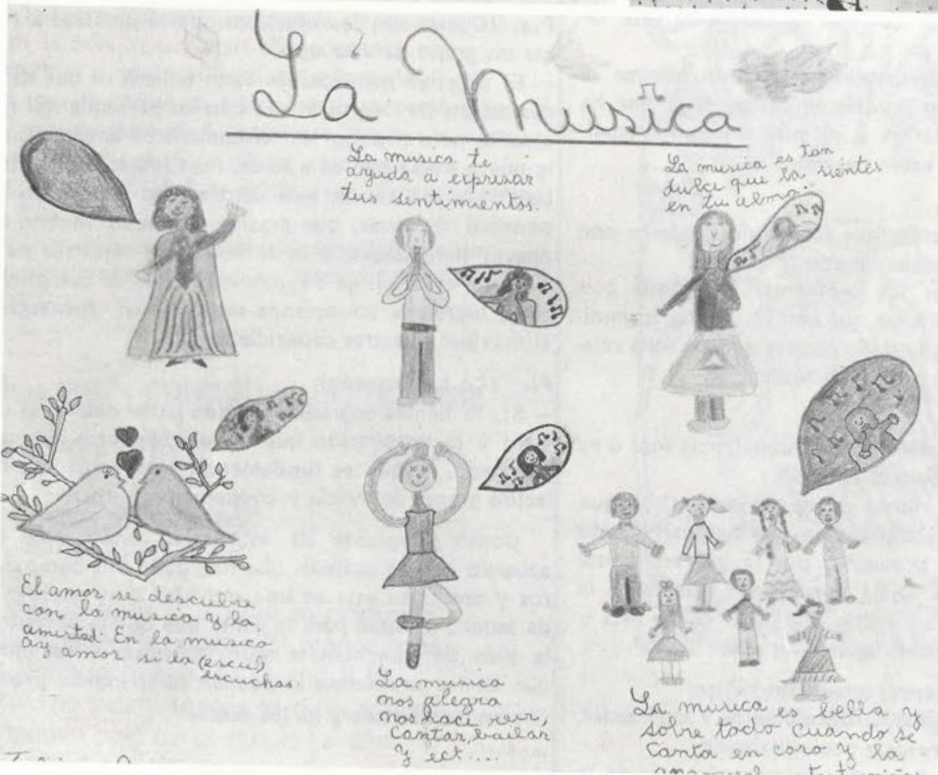 La Musica
La musica te
ayuda a expresar
tus sentimientos.
La musica es tan
dulci que la sientes
en tu alma.
El amor se descubre
con la musica y la
amistad. En la musica
ay amor si la (escuh)
escuchas
La musica
nos alegra
nos haci reir,
cantar, bailar
y ect...
La musica es bella y
sobre todo cuando se
canta en coro y la